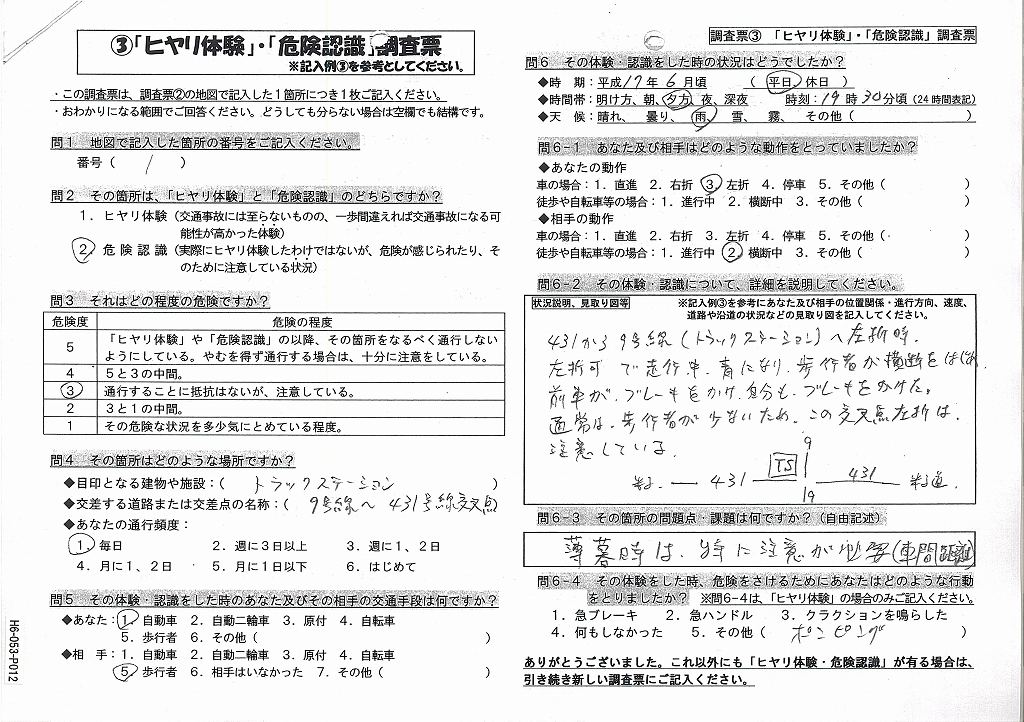 ③「ヒヤリ体験」・「危険認識」調査票
※記入例③を参考としてください。
・この調査票は、調査票②の地図で記入した1箇所につき1枚ご記入ください。
・おわかりになる範囲でご回答ください。どうしても分らない場合は空欄でも結構です。
問1 地図で記入した箇所の番号をご記入ください。
番号（ 1 ）
問2 その箇所は、「ヒヤリ体験」と「危険認識」のどちらですか？
1．ヒヤリ体験（交通事故には至らないものの、一歩間違えれば交通事故になる可
能性が高かった体験）
2．危険認識（実際にヒヤリ体験したわけではないが、危険が感じられたり、そ
のために注意している状況）
問3 それはどの程度の危険ですか？
危険度 危険の程度
5 「ヒヤリ体験」や「危険認識」の以降、その箇所をなるべく通行しない
ようにしている。やむを得ず通行する場合は、十分に注意をしている。
4 5と3の中間。
3 通行することに抵抗はないが、注意している。
2 3と1の中間。
1 その危険な状況を多少気にとめている程度。
問4 その箇所はどのような場所ですか？
◆目印となる建物や施設：（ トラックステーション ）
◆交差する道路または交差点の名称：（ 9号線〜431号線交叉点
◆あなたの通行頻度：
1．毎日 2．週に3日以上 3．週に1、2日
4．月に1、2日 5．月に1日以下 6．はじめて
問5 その体験・認識をした時のあなた及びその相手の交通手段は何ですか？
◆あなた：1．自動車 2．自動二輪車 3．原付 4．自転車
5．歩行者 6．その他（ ）
◆相 手：1．自動車 2．自動二輪車 3．原付 4．自転車
5．歩行者 6．相手はいなかった 7．その他（ ）
H6-053-P012
調査票③ 「ヒヤリ体験」・「危険認識」調査票
問6 その体験・認識をした時の状況はどうでしたか？
◆時 期：平成17年 6月頃 （ 平日、休日 ）
◆時間帯：明け方、朝、夕方、夜、深夜 時刻：19時30分頃（24時間表記）
◆天 候：晴れ、曇り、雨、雪、霧、その他（ ）
問6-1 あなた及び相手はどのような動作をとっていましたか？
◆あなたの動作
車の場合：1．直進 2．右折 3．左折 4．停車 5．その他（ ）
徒歩や自転車等の場合：1．進行中 2．横断中 3．その他（ ）
◆相手の動作
車の場合：1．直進 2．右折 3．左折 4．停車 5．その他（ ）
徒歩や自転車等の場合：1．進行中 2．横断中 3．その他（ ）
問6-2 その体験・認識について、詳細を説明してください。
状況説明、見取り図等 ※記入例③を参考にあなた及び相手の位置関係・進行方向、速度、
道路や沿道の状況などの見取り図を記入してください。
431から9号線（トラックステーション）へ左折時、
左折可で走行中、青になり、歩行者が横断をはじめ、
前車が、ブレーキをかけ、自分も、ブレーキをかけた。
通常は、歩行者が少ないため、この交叉点左折は、
注意している。
9
TS
431 431
19
問6-3 その箇所の問題点・課題は何ですか？（自由記述）
薄暮時は、特に注意が必要（車間距離）
問6-4 その体験をした時、危険をさけるためにあなたはどのような行動
をとりましたか？ ※問6-4は、「ヒヤリ体験」の場合のみご記入ください。
1．急ブレーキ 2．急ハンドル 3．クラクションを鳴らした
4．何もしなかった 5．その他（ ポンピング ）
ありがとうございました。これ以外にも「ヒヤリ体験・危険認識」が有る場合は、
引き続き新しい調査票にご記入ください。